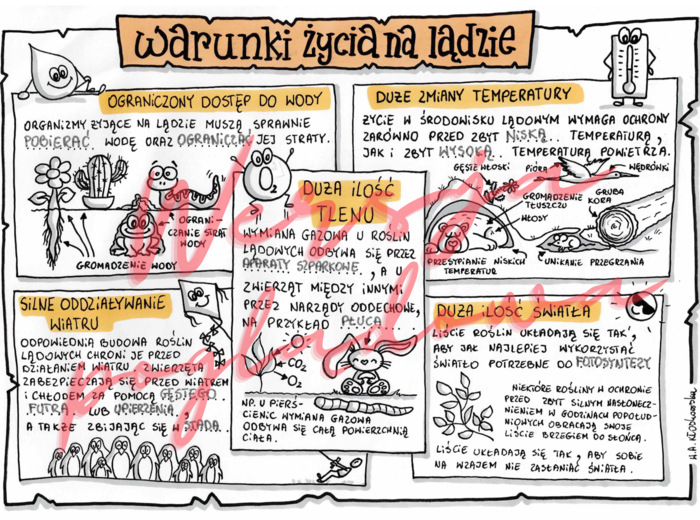 warunki życia na lądzie
OGRANICZONY DOSTĘP DO WODY
ORGANIZMY ŻYJĄCE NA LĄDZIE MUSZĄ SPRAWNIE
POBIERAĆ WODĘ ORAZ OGRANICZAĆ JEJ STRATY.
OGRANI-
CZANIE STRAT
WODY
GROMADZENIE WODY
DUŻE ZMIANY TEMPERATURY
ŻYCIE W ŚRODOWISKU LĄDOWYM WYMAGA OCHRONY
ZARÓWNO PRZED ZBYT NISKĄ.. TEMPERATURĄ,
JAK I ZBYT WYSOKĄ.. TEMPERATURĄ POWIETRZA.
GĘSTE WŁOSKI
PIÓRA
WĘDRÓWKI
GROMADZENIE
TŁUSZCZU
GRUBA
KORA
WŁOSY
PRZESYPIANIE NISKICH
TEMPERATUR
UNIKANIE PRZEGRZANIA
O2
DUŻA ILOŚĆ
TLENU
WYMIANA GAZOWA U ROŚLIN
LĄDOWYCH ODBYWA SIĘ PRZEZ
APARATY SZPARKOWE..., A U
ZWIERZĄT MIĘDZY INNYMI
PRZEZ NARZĄDY ODDECHOWE,
NA PRZYKŁAD PŁUCA...
O2
CO2
O2
NP. U PIERŚ-
CIENIC WYMIANA GAZOWA
ODBYWA SIĘ CAŁĄ POWIERZCHNIĄ
CIAŁA.
SILNE ODDZIAŁYWANIE
WIATRU
ODPOWIEDNIA BUDOWA ROŚLIN
LĄDOWYCH CHRONI JE PRZED
DZIAŁANIEM WIATRU. ZWIERZĘTA
ZABEZPIECZAJĄ SIĘ PRZED WIATREM
I CHŁODEM ZA POMOCĄ GĘSTEGO
FUTRA.. LUB UPIERZENIA.,
A TAKŻE ZBIJAJĄC SIĘ W STADA..
DUŻA ILOŚĆ ŚWIATŁA
LIŚCIE ROŚLIN UKŁADAJĄ SIĘ TAK,
ABY JAK NAJLEPIEJ WYKORZYSTAĆ
ŚWIATŁO POTRZEBNE DO FOTOSYNTEZY
NIEKTÓRE ROŚLINY W OCHRONIE
PRZED ZBYT SILNYM NASŁONECZ-
NIENIEM W GODZINACH POPOŁUD-
NIOWYCH OBRACAJĄ SWOJE
LIŚCIE BRZEGIEM DO SŁOŃCA.
LIŚCIE UKŁADAJĄ SIĘ TAK, ABY SOBIE
NA WZAJEM NIE ZASŁANIAĆ ŚWIATŁA.
Wersja
poglądowa